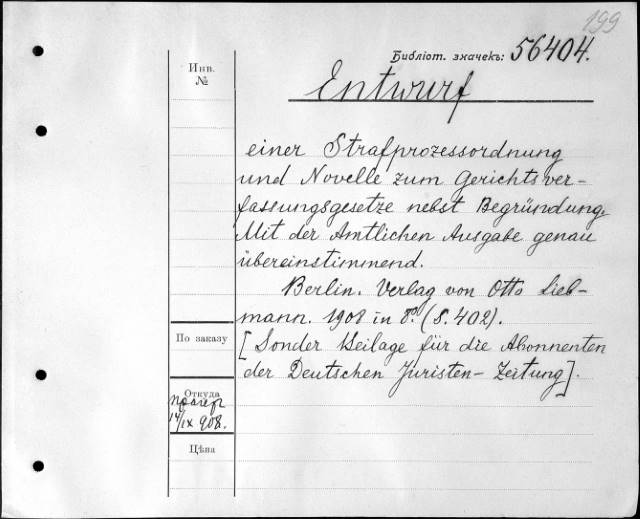 199
Библіот. значекъ: 56404.
Инв.
№
Entwurf
einer Strafprozessordnung
und Novelle zum Gerichtsver-
fassungsgesetze nebst Begründung.
Mit der Amtlichen Ausgabe genau
übereinstimmend.
Berlin. Verlag von Otto Lieb-
mann. 1908 in 8º (S. 402).
[Sonder Beilage für die Abonnenten
der Deutschen Juristen-Zeitung].
По заказу
Откуда
14/IX 908.
Цѣна